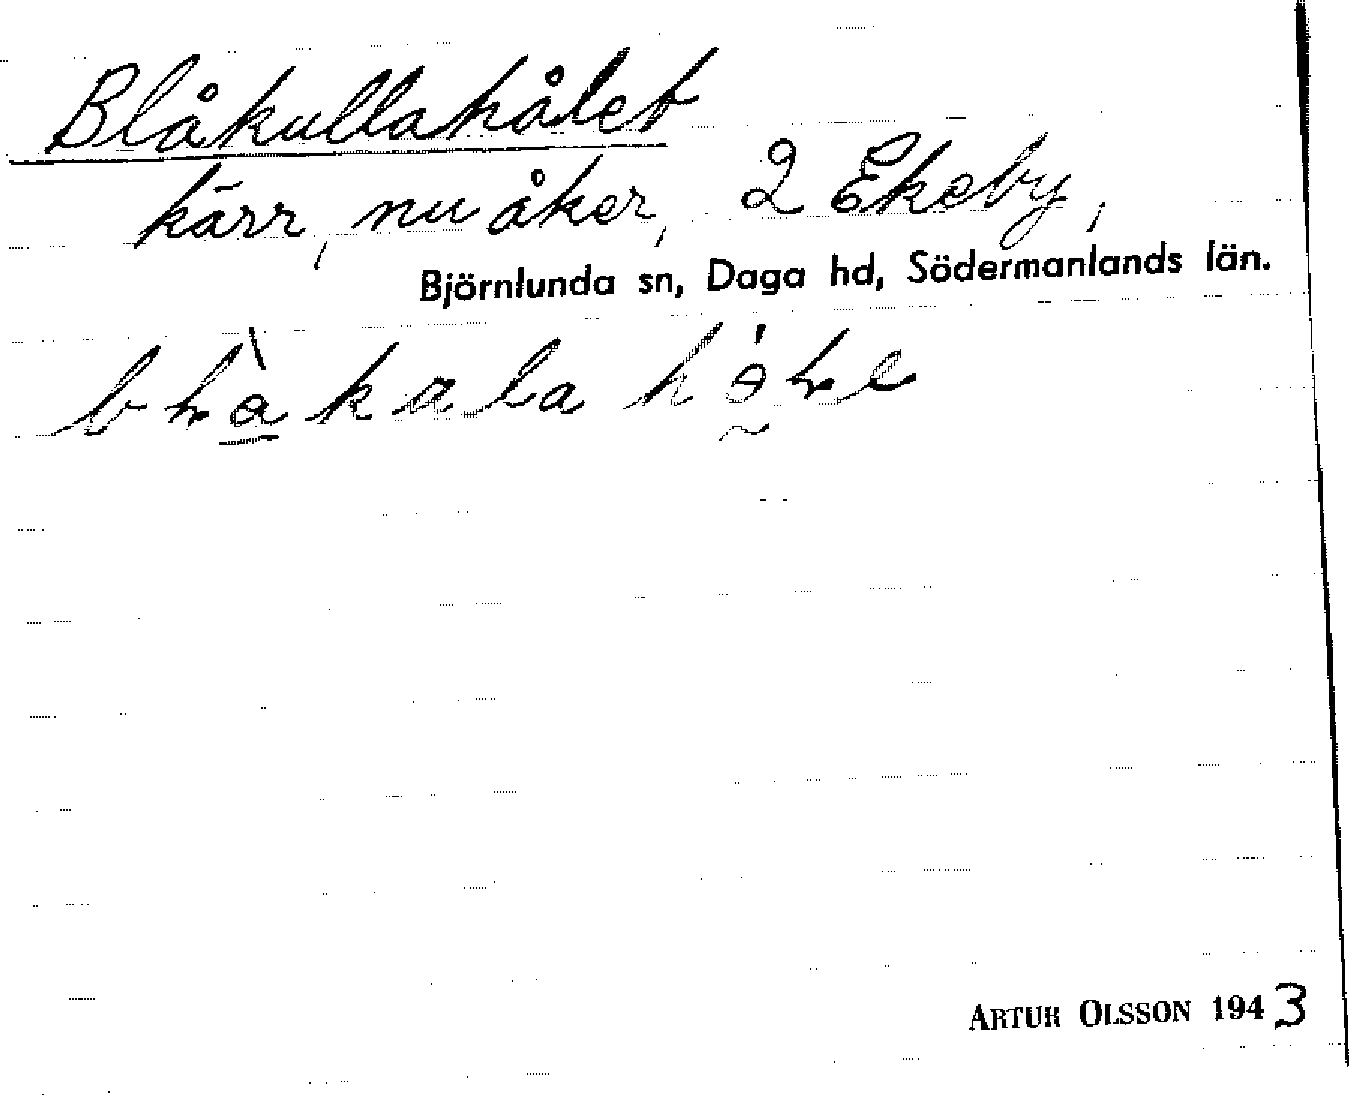 Blåkullahålet
kärr, nu åker, 2 Ekeby,
Björnlunda sn, Daga hd, Södermanlands län.
ARTUR OLSSON 1943